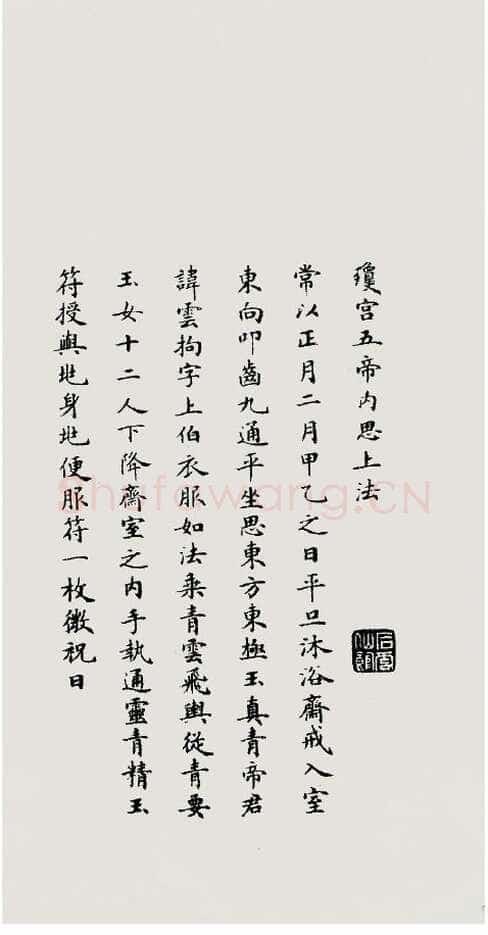 瓊宫五帝内思上法
常以正月二月甲乙之日平旦沐浴齋戒入室
東向叩齒九通平坐思東方東極玉真青帝君
諱雲拘字上伯衣服如法乘青雲飛輿從青要
玉女十二人下降齋室之内手執通靈青精玉
符授與地身地便服符一枚微祝曰
Shufawang.CN